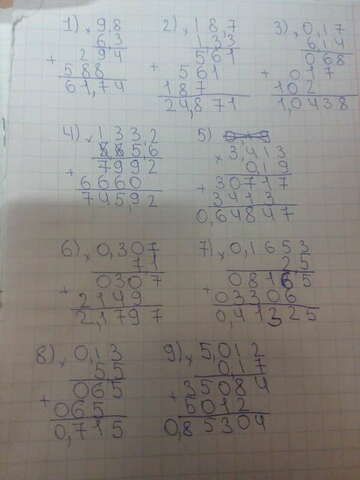 1) × 9,8
6,3
+ 294
588
61,74
2) × 1,87
13,3
561
+ 561
187
24,871
3) × 0,17
6,14
068
+ 017
102
1,0438
4) × 1332
5,6
7992
+ 6660
7459,2
5)
× 3,413
0,19
+ 30717
3413
0,64847
6) × 0,307
7,1
+ 0307
2149
2,1797
7) × 0,1653
2,5
+ 08165
03306
0,41325
8) × 0,13
5,5
+ 065
065
0,715
9) × 5,012
0,17
+ 35084
5012
0,85304